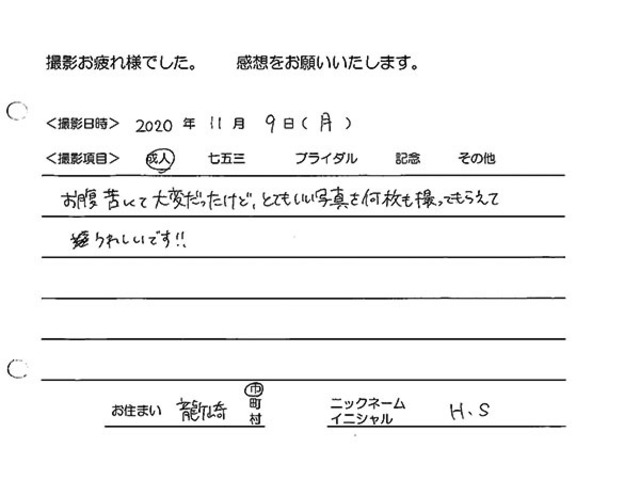 撮影お疲れ様でした。 感想をお願いいたします。
<撮影日時> 2020 年 11 月 9 日 (月)
<撮影項目> 成人 七五三 ブライダル 記念 その他
お腹苦しくて大変だったけど、とてもいい写真を何枚も撮ってもらえて
うれしいです!!
お住まい 龍ヶ崎 市 町 村 ニックネーム イニシャル H.S